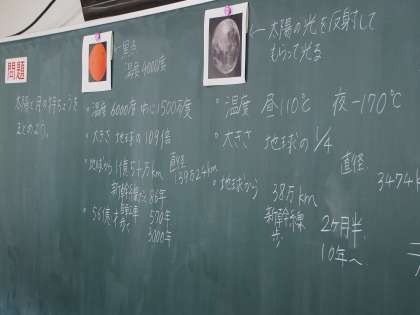 問題
太陽と月の特ちょうを
まとめよう。
←黒点
温度4000度
。温度 6000度 中心1500万度
。大きさ 地球の109倍
。地球から1億5千万km
直径
139万24km
新幹線だと 86年
570年
3000年
←太陽の光を反射して
もらって光る
。温度 昼110℃ 夜−170℃
。大きさ 地球の1/4
直径
3474k
。地球から 38万km
新幹線 2ヶ月半
歩 10年〜